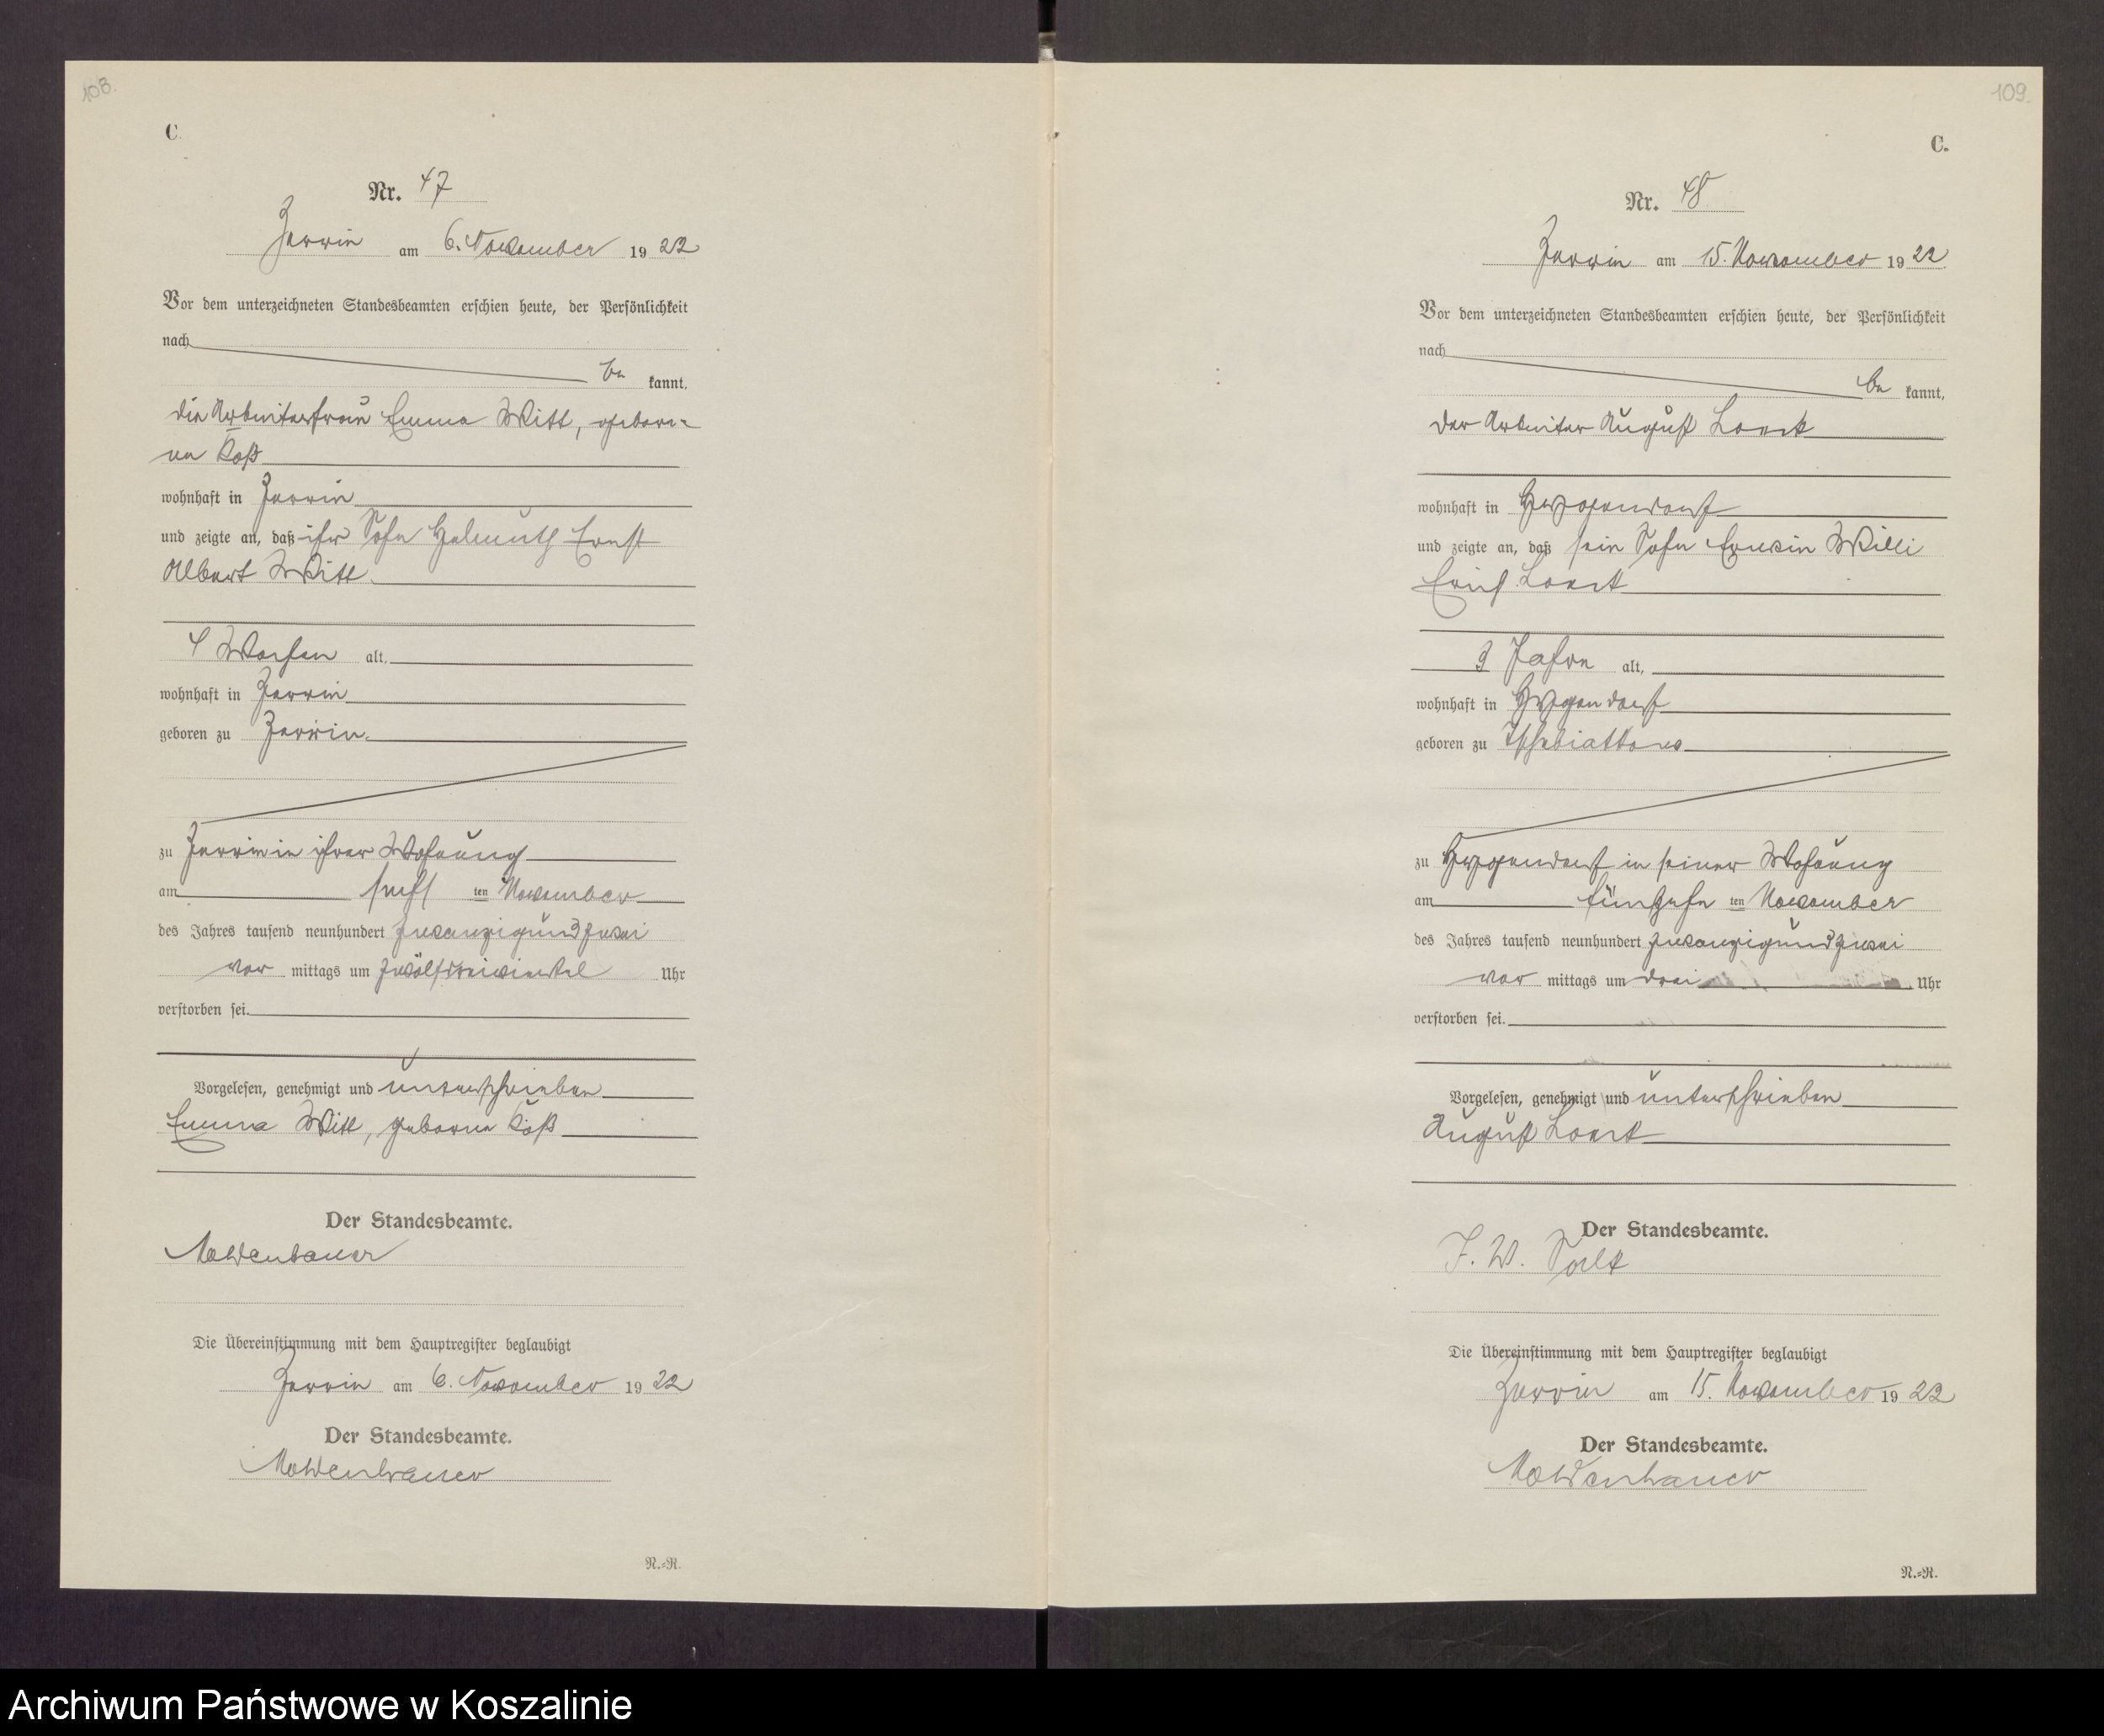 108.
C.
Nr. 47
Zerrin am 6. November 1922
Vor dem unterzeichneten Standesbeamten erschien heute, der Persönlichkeit
nach
be kannt,
die Arbeiterfrau Emma Witt, gebore-
ne Koß
wohnhaft in Zerrin
und zeigte an, daß ihr Sohn Helmuth Ernst
Albert Witt
4 Wochen alt,
wohnhaft in Zerrin
geboren zu Zerrin
zu Zerrin in ihrer Wohnung
am sechs ten November
des Jahres tausend neunhundert zwanzigundzwei
vor mittags um zwölfdreiviertel Uhr
verstorben sei.
Vorgelesen, genehmigt und unterschrieben
Emma Witt, geborene Koß
Der Standesbeamte.
Moldenhauer
Die Übereinstimmung mit dem Hauptregister beglaubigt
Zerrin am 6. November 1922
Der Standesbeamte.
Moldenhauer
N.=R.
109.
C.
Nr. 48
Zerrin am 15. November 1922
Vor dem unterzeichneten Standesbeamten erschien heute, der Persönlichkeit
nach
be kannt,
der Arbeiter August Lorck
wohnhaft in Hygendorf
und zeigte an, daß sein Sohn Erwin Willi
Erich Lorck
3 Jahre alt,
wohnhaft in Hygendorf
geboren zu Tschebiatkow
zu Hygendorf in seiner Wohnung
am fünfzehn ten November
des Jahres tausend neunhundert zwanzigundzwei
vor mittags um drei Uhr
verstorben sei.
Vorgelesen, genehmigt und unterschrieben
August Lorck
Der Standesbeamte.
I. V.
Die Übereinstimmung mit dem Hauptregister beglaubigt
Zerrin am 15. November 1922
Der Standesbeamte.
Moldenhauer
N.=R.
Archiwum Państwowe w Koszalinie